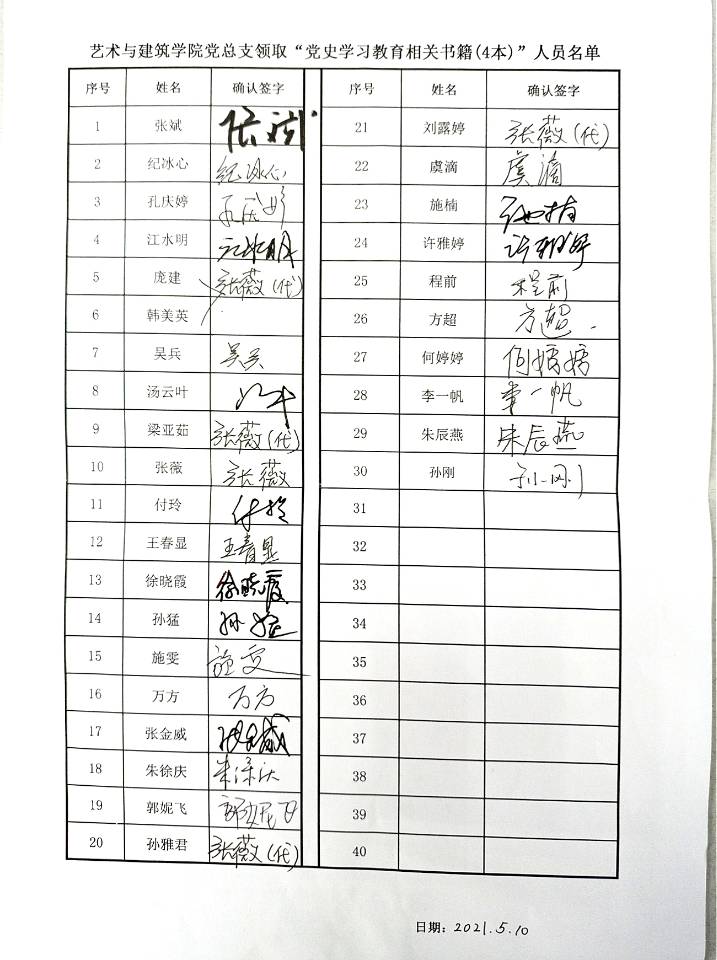 艺术与建筑学院党总支领取“党史学习教育相关书籍(4本)”人员名单
序号 姓名 确认签字 序号 姓名 确认签字
1 张斌 张斌 21 刘露婷 张薇(代)
2 纪冰心 纪冰心 22 虞滴 虞滴
3 孔庆婷 孔庆婷 23 施楠 施楠
4 江水明 江水明 24 许雅婷 许雅婷
5 庞建 张薇(代) 25 程前 程前
6 韩美英 26 方超 方超
7 吴兵 吴兵 27 何婷婷 何婷婷
8 汤云叶 28 李一帆 李一帆
9 梁亚茹 张薇(代) 29 朱辰燕 朱辰燕
10 张薇 张薇 30 孙刚 孙刚
11 付玲 付玲 31
12 王春显 王春显 32
13 徐晓霞 徐晓霞 33
14 孙猛 孙猛 34
15 施雯 施雯 35
16 万方 万方 36
17 张金威 张金威 37
18 朱徐庆 38
19 郭妮飞 郭妮飞 39
20 孙雅君 张薇(代) 40
日期: 2021.5.10